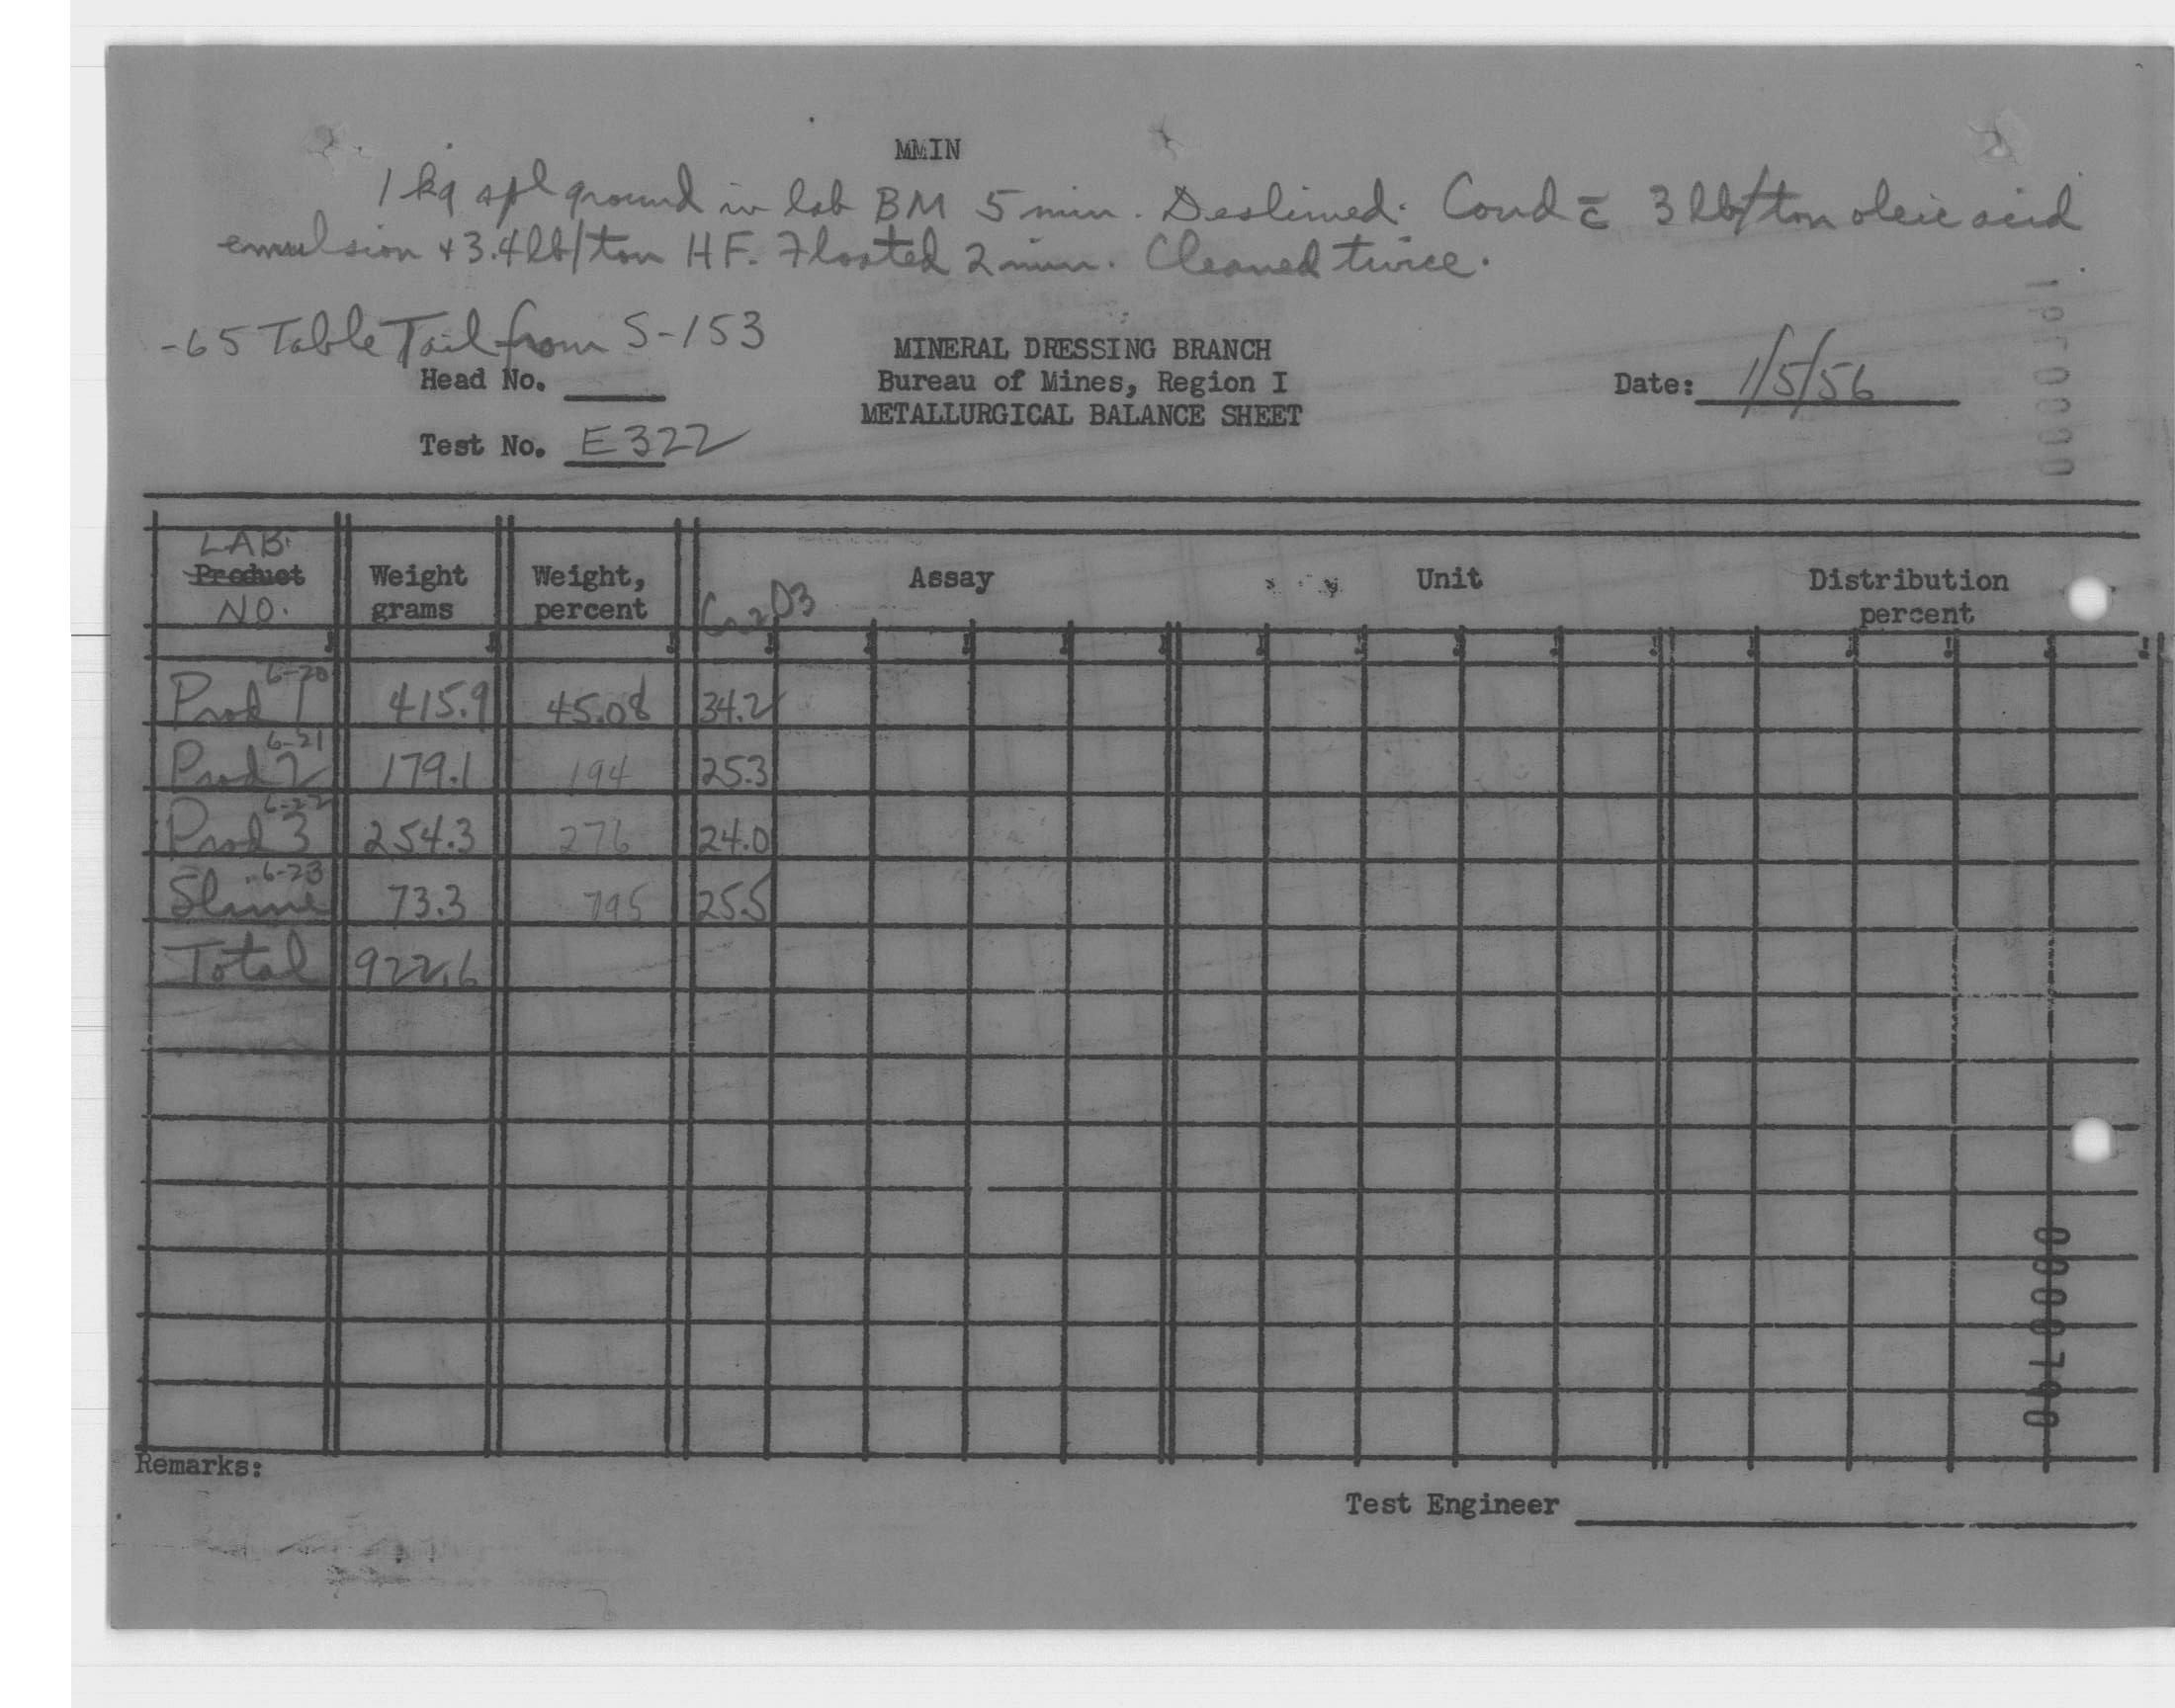 MMIN
1 kg spl ground in lab BM 5 min. Deslimed. Cond c̄ 3 lb/ton oleic acid
emulsion + 3.4 lb/ton HF. Floated 2 min. Cleaned twice.
-65 Table Tail from S-153
Head No.
Test No. E322
MINERAL DRESSING BRANCH
Bureau of Mines, Region I
METALLURGICAL BALANCE SHEET
Date: 1/5/56
LAB. Product NO.
Weight grams
Weight, percent
Assay
Unit
Distribution percent
Cr2O3
Prod 1 6-20 415.9 45.08 34.2
Prod 2 6-21 179.1 194 25.3
Prod 3 6-22 254.3 276 24.0
Slime 6-23 73.3 795 25.5
Total 922.6
Remarks:
Test Engineer
0000740